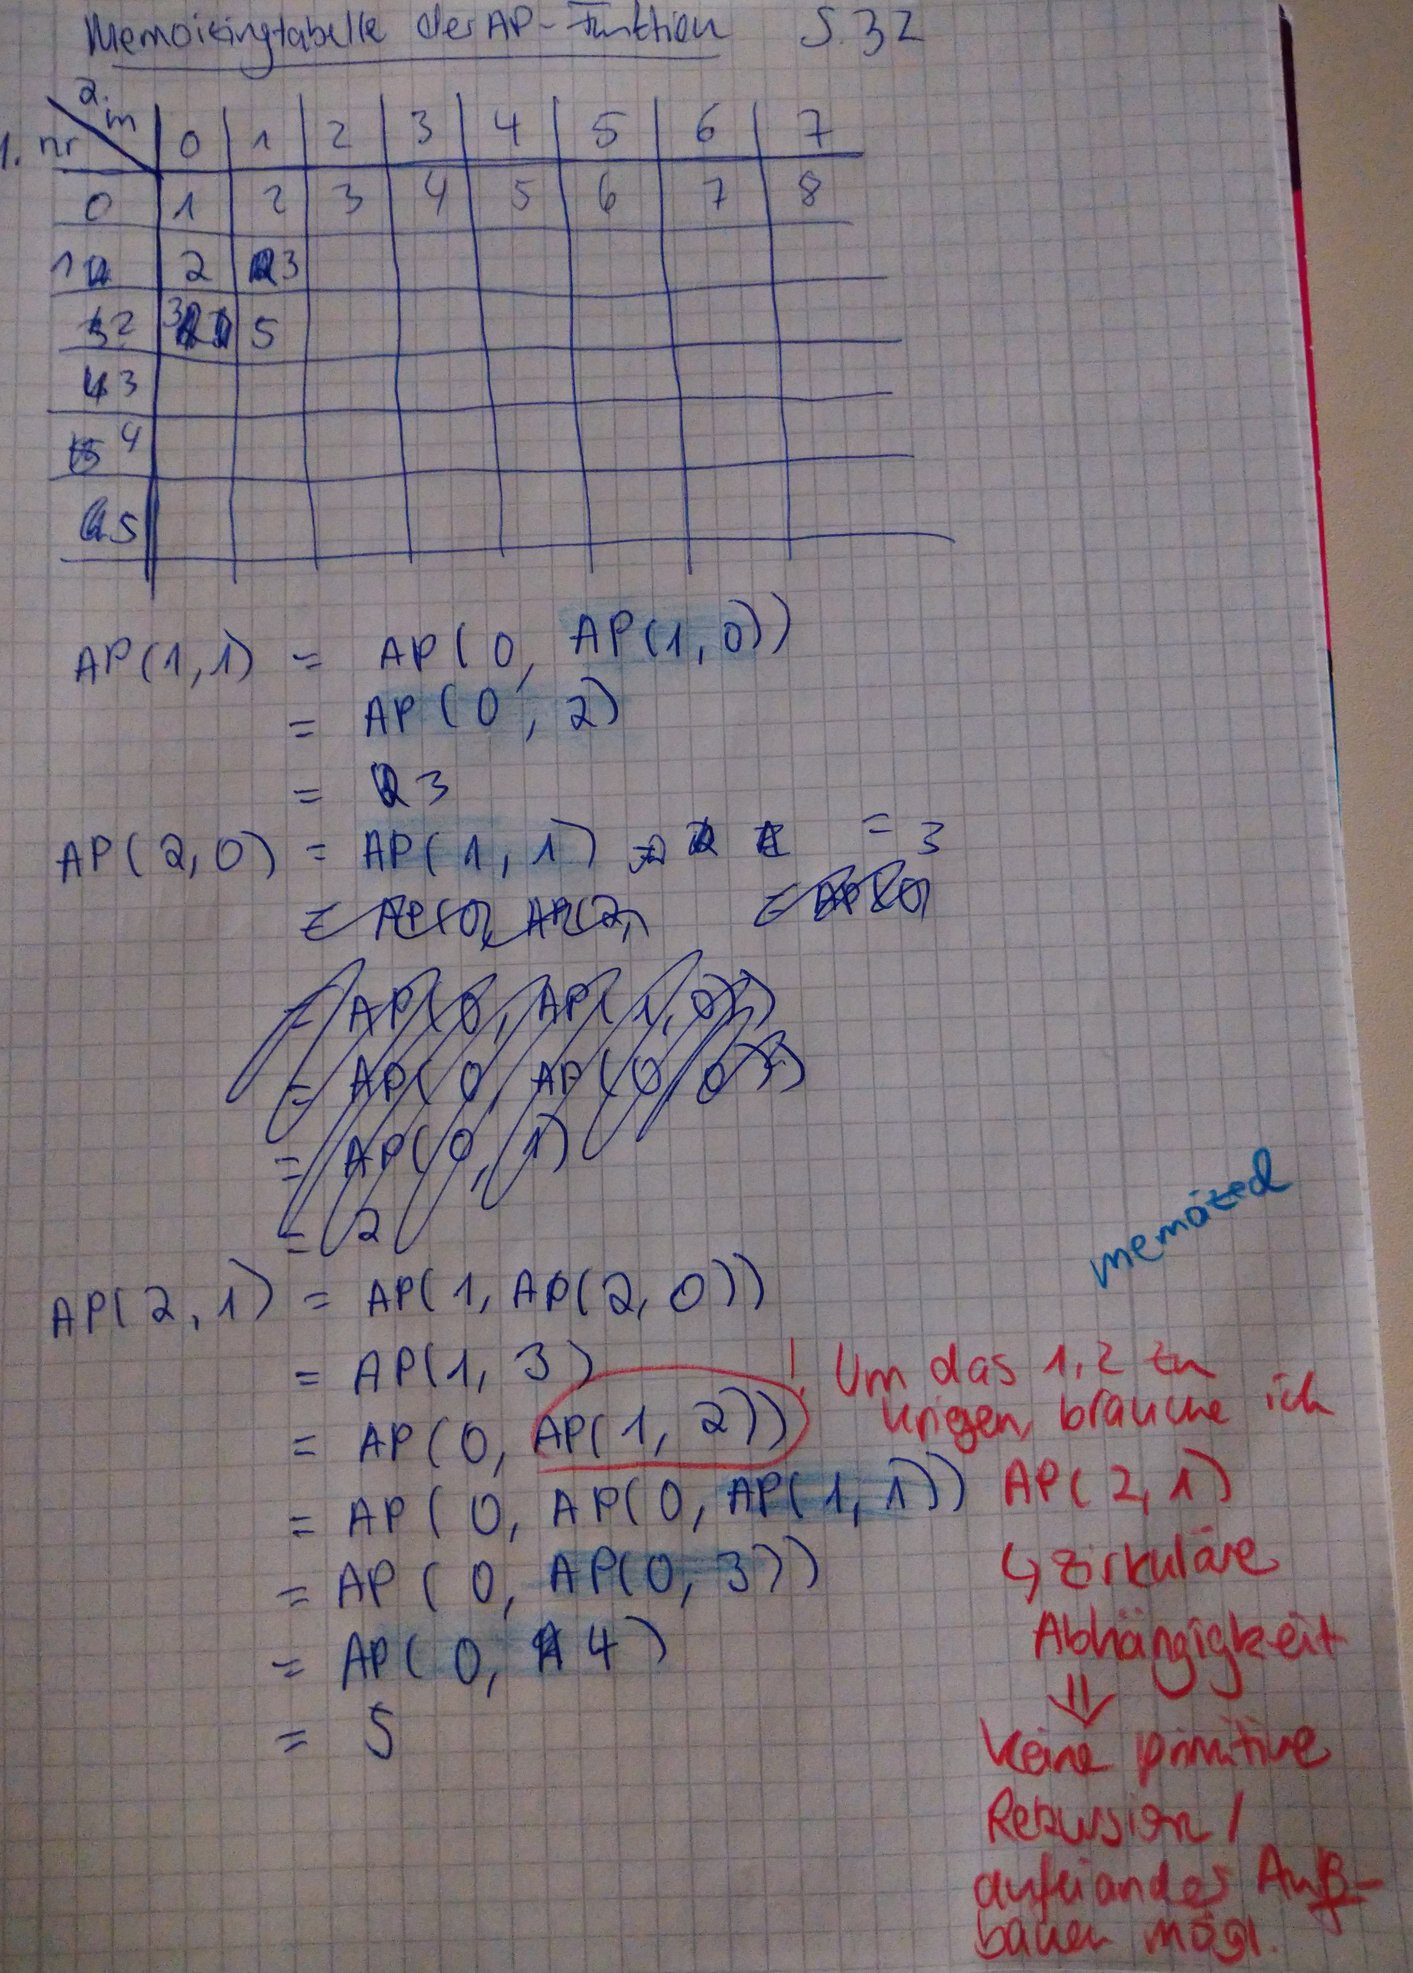 Memoisingtabelle der AP-Funktion S.32
2. m
1. nr 0 1 2 3 4 5 6 7
0 1 2 3 4 5 6 7 8
1 2 3
2 3 5
3
4
5
AP(1,1) = AP(0, AP(1,0))
= AP(0, 2)
= 3
AP(2,0) = AP(1,1) = 3
= AP(0, AP(2,
= AP(0, AP(1,0))
= AP(0, AP(0, 0))
= AP(0, 1)
= 2
memoized
AP(2,1) = AP(1, AP(2,0))
= AP(1, 3)
= AP(0, AP(1, 2))
= AP(0, AP(0, AP(1,1))
= AP(0, AP(0, 3))
= AP(0, 4)
= 5
! Um das 1,2 zu
kriegen, brauche ich
AP(2,1)
↳ zirkuläre
Abhängigkeit
⇓
keine primitive
Rekursion /
aufeinandes Auf-
bauen mögl.